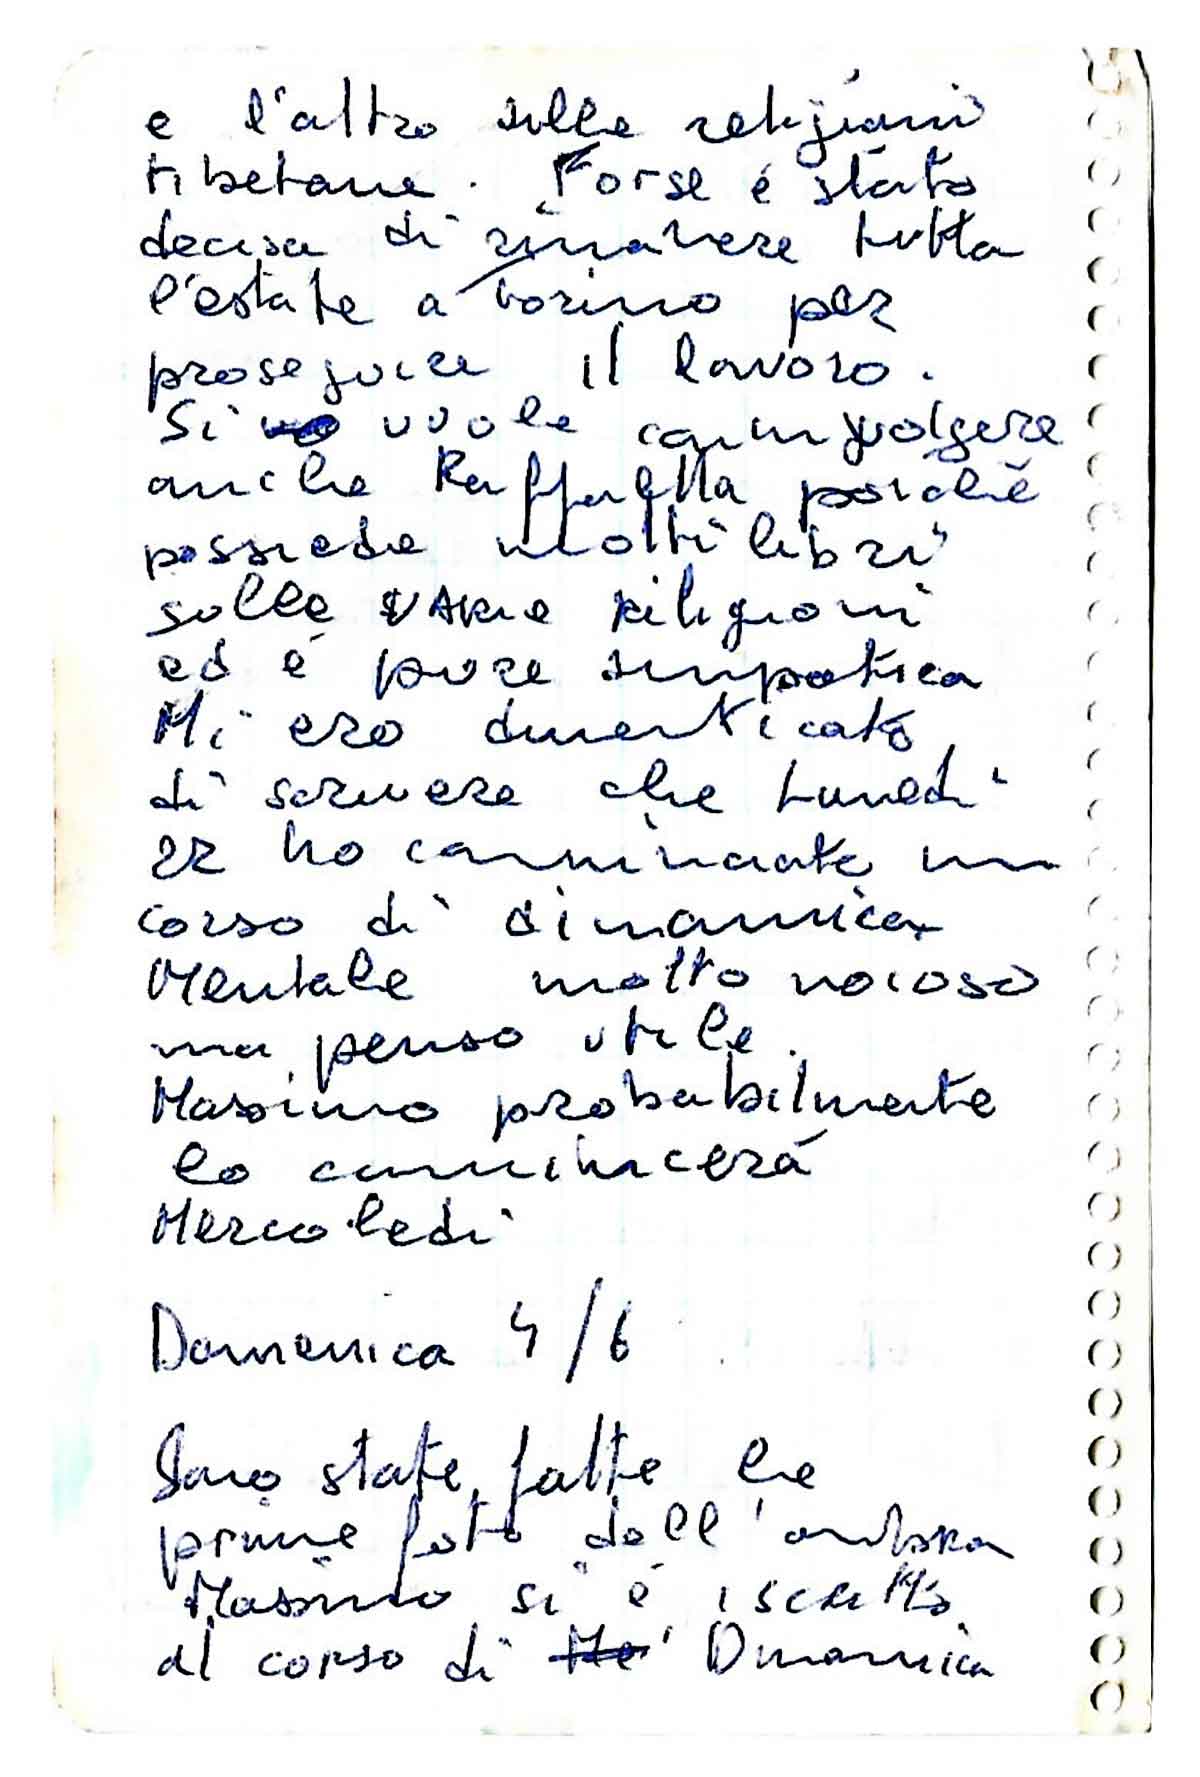 e l'altro sulle religioni
tibetane. Forse é stato
deciso di rimanere tutta
l'estate a Torino per
proseguire il lavoro.
Si vuole coinvolgere
anche Raffaella poiché
possiede molti libri
sulle varie religioni
ed é pure simpatica
Mi ero dimenticato
di scrivere che Lunedì
22 ho cominciato un
corso di dinamica
Mentale molto noioso
ma penso utile.
Massimo probabilmente
lo comincerá
Mercoledì
Domenica 4/6
Sono state fatte le
prime foto dell'ombra
Massimo si é iscritto
al corso di Dinamica